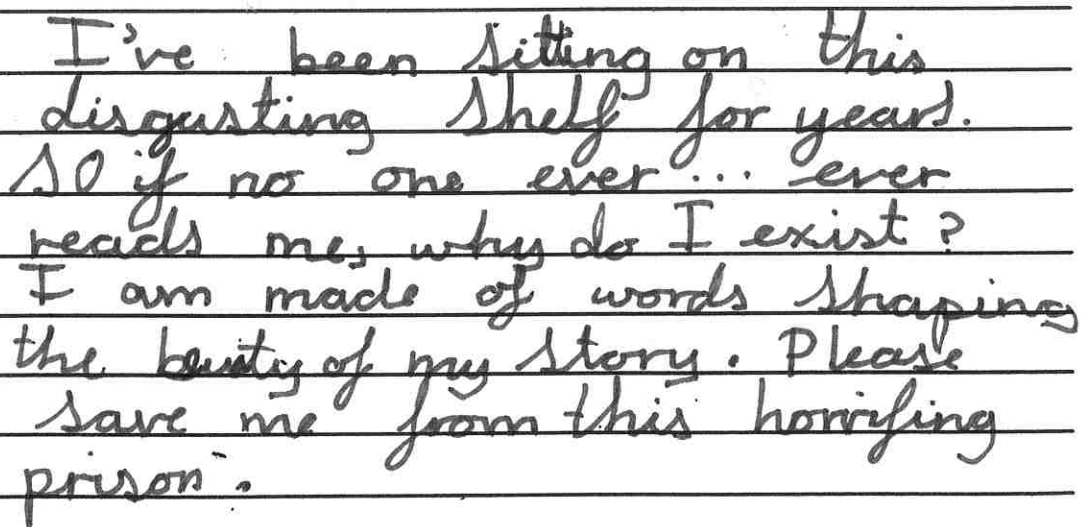 I've been sitting on this
disgusting shelf for years.
So if no one ever ... ever
reads me, why do I exist?
I am made of words shaping
the beuity of my story. Please
save me from this horrifing
prison.